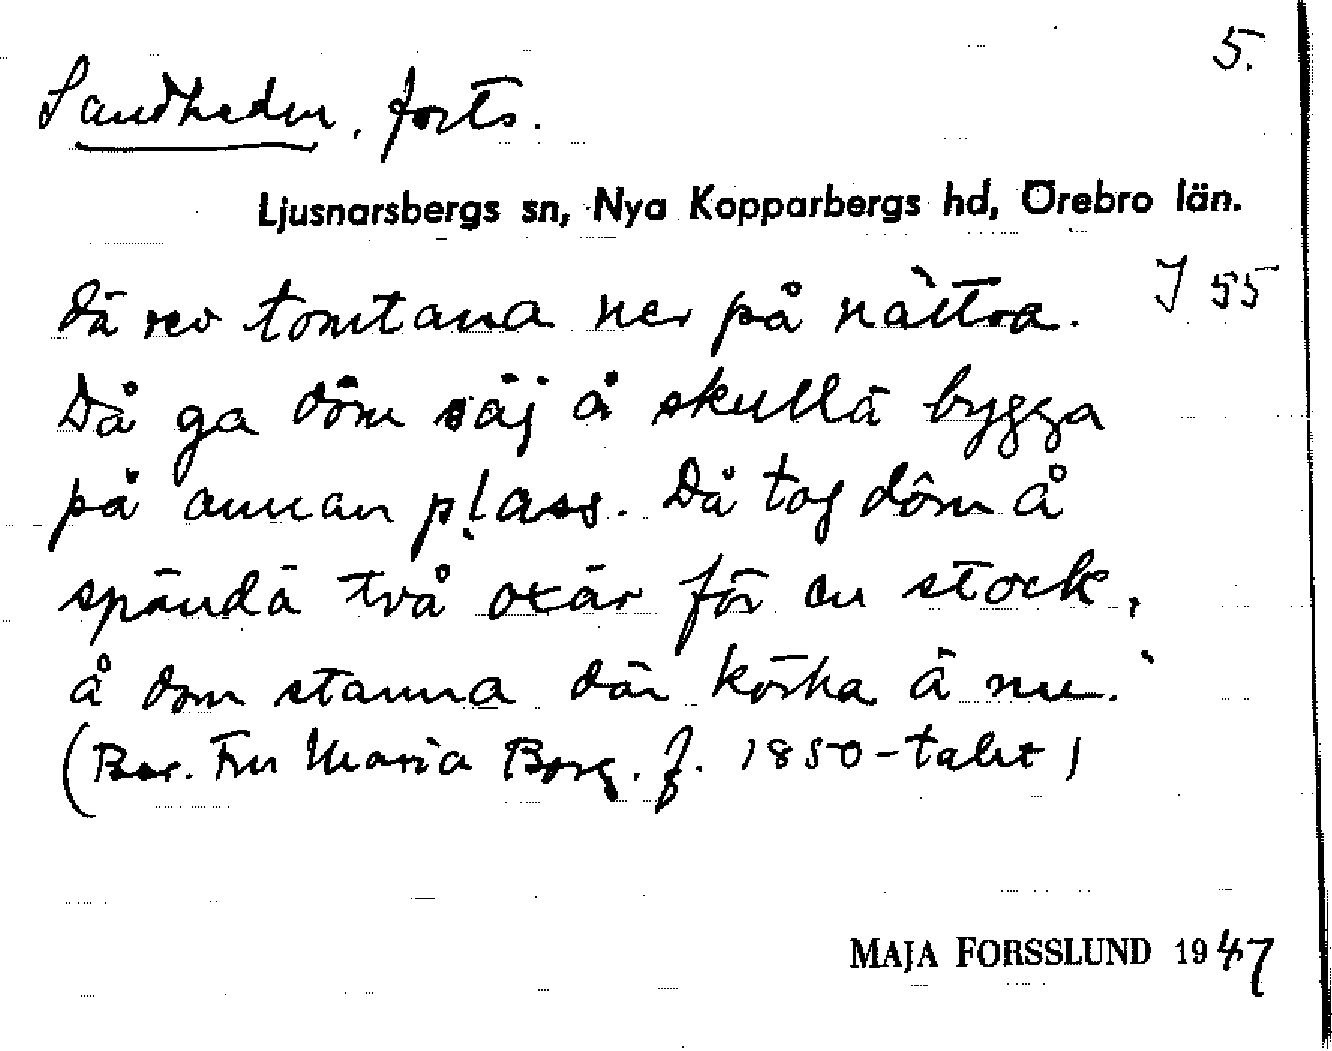 5.
Sandheden, forts.
Ljusnarsbergs sn, Nya Kopparbergs hd, Örebro län.
dä rev tomtana ner på nättra. J 55
Då ga döm säj å skullä bygga
på annan pḷass. Då tog dôm å
spändä två oxär för en stock,
å dom stanna där körka ä nu.
(Ber. Fru Maria Borg. f. 1850-talet)
MAJA FORSSLUND 1947